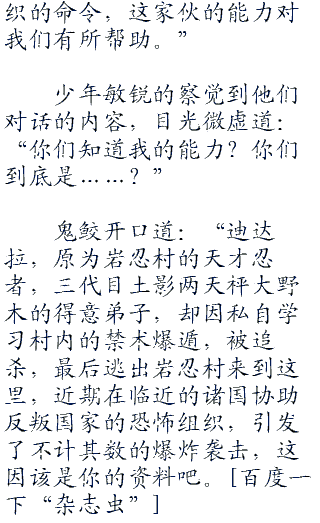 织的命令，这家伙的能力对
我们有所帮助。”
少年敏锐的察觉到他们
对话的内容，目光微虚道：
“你们知道我的能力？你们
到底是……？”
鬼鲛开口道：“迪达
拉，原为岩忍村的天才忍
者，三代目土影两天秤大野
木的得意弟子，却因私自学
习村内的禁术爆遁，被追
杀，最后逃出岩忍村来到这
里，近期在临近的诸国协助
反叛国家的恐怖组织，引发
了不计其数的爆炸袭击，这
因该是你的资料吧。[百度一
下“杂志虫”]